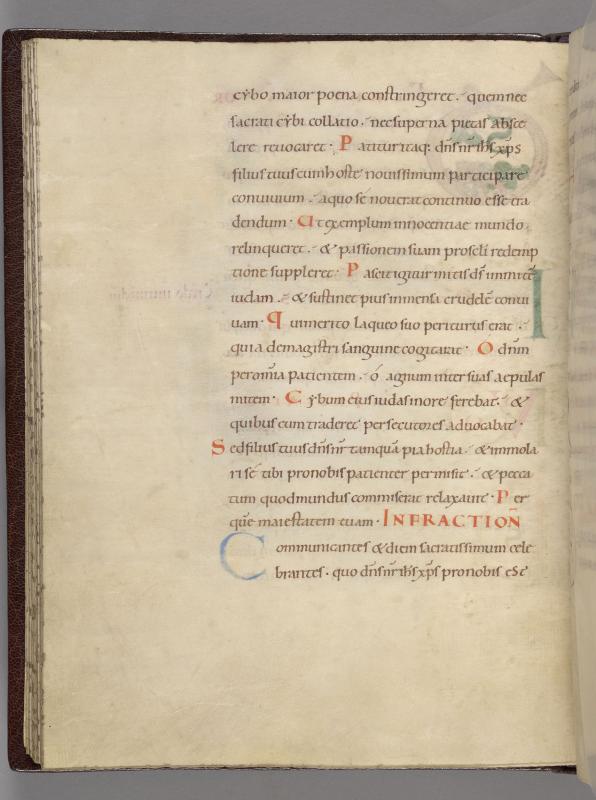 cybo maior poena constringeret. quem nec
sacrati cybi collatio. nec superna pietas a bsce
lere reuocaret. Patitur itaq: dn̄s nr̄ ih̄s xp̄s
filius tuus cum hoste nouissimum participare
conuiuium. a quo se nouerat continuo esse tra
dendum. Ut exemplum innocentiae mundo
relinqueret. & passionem suam pro sc̄li redemp
tione suppleret. Pascit igitur mitis ds̄ inmitē
iudam. & sustinet pius in mensa crudelē conui
uam. Qui merito laqueo suo periturus erat.
quia de magistri sanguine cogitarat. O dn̄m
per om̄ia patientem. ó agnum inter suas aepulas
mitem. Cybum eius iudas in ore ferebat. &
quibus eum traderet persecutores aduocabat.
Sed filius tuus dn̄s nr̄ tamquā pia hostia. & immola
ri sē tibi pro nobis patienter permisit. & pecca
tum quod mundus commiserat relaxauit. Per
quē maiestatem tuam. INFRACTION̄
Communicantes & diem sacratissimum cele
brantes. quo dn̄s nr̄ ih̄s xp̄s pro nobis est